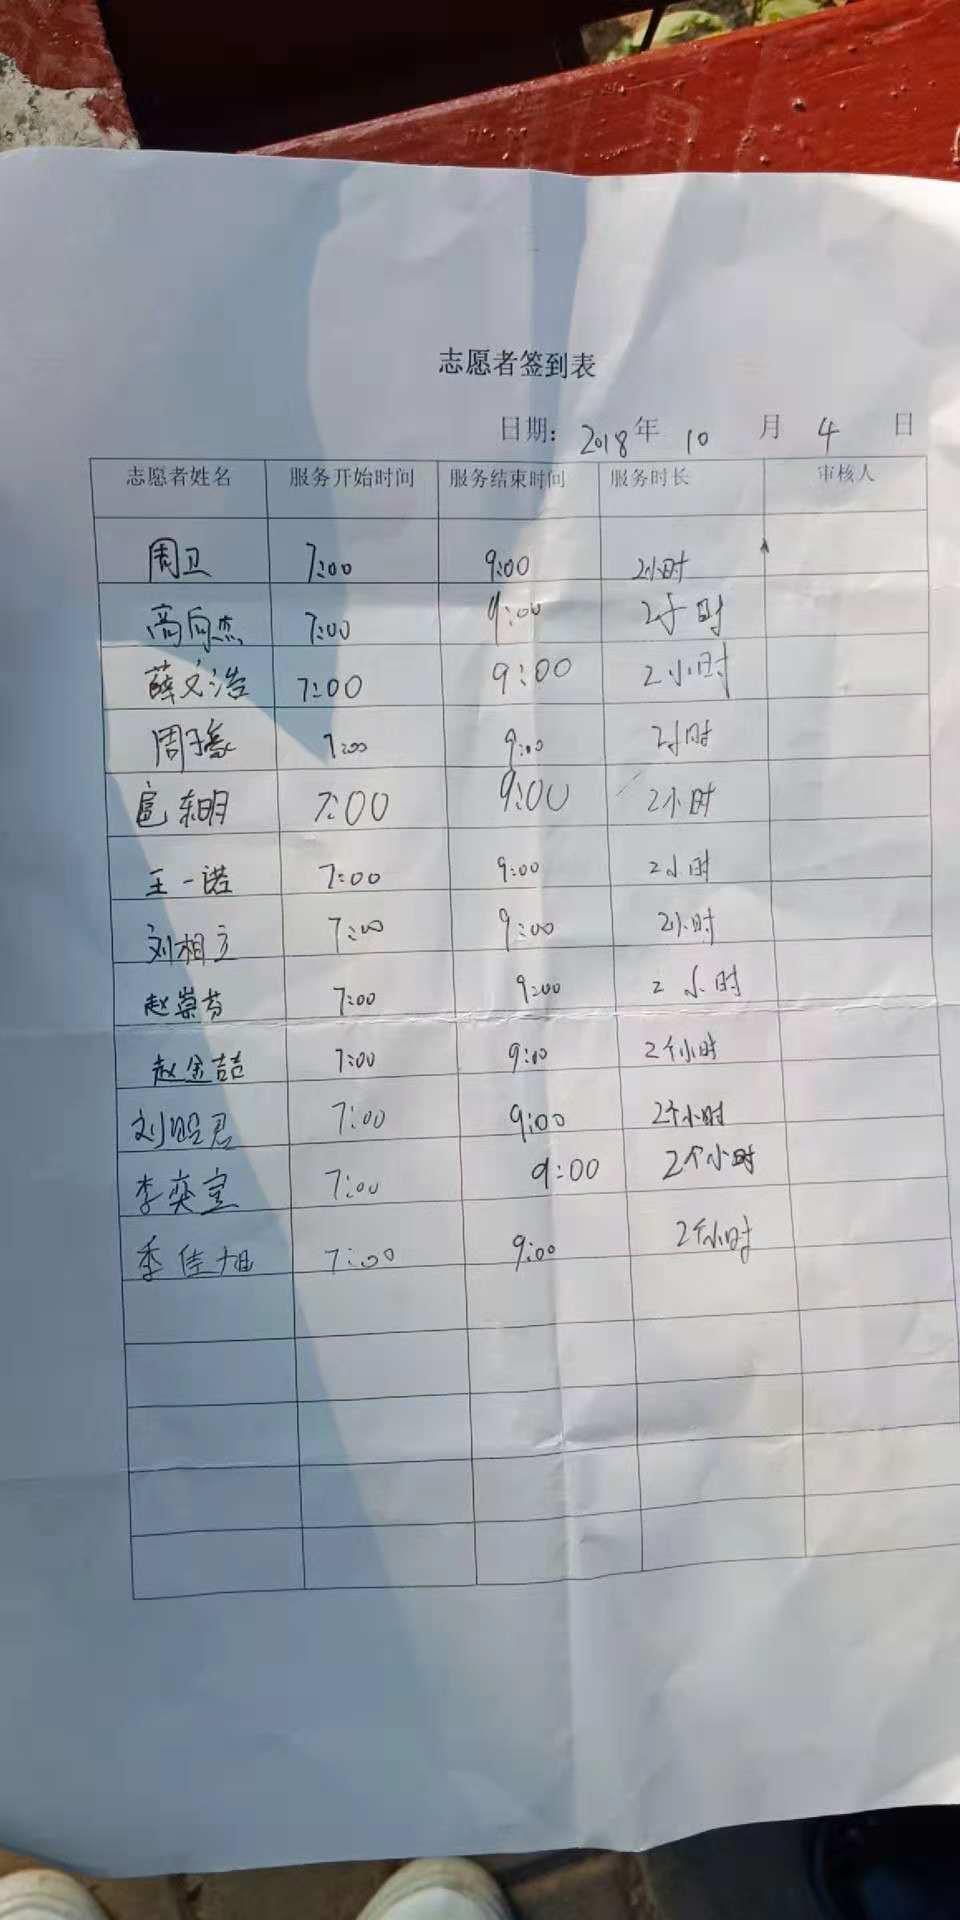 志愿者签到表
日期: 2018 年 10 月 4 日
志愿者姓名 服务开始时间 服务结束时间 服务时长 审核人
周卫 7:00 9:00 2小时
高向杰 7:00 9:00 2小时
薛文浩 7:00 9:00 2小时
周子豪 7:00 9:00 2小时
扈东明 7:00 9:00 2小时
王一诺 7:00 9:00 2小时
刘相立 7:00 9:00 2小时
赵崇芬 7:00 9:00 2小时
赵金喆 7:00 9:00 2个小时
刘昭君 7:00 9:00 2个小时
李奕宣 7:00 9:00 2个小时
季佳旭 7:00 9:00 2个小时